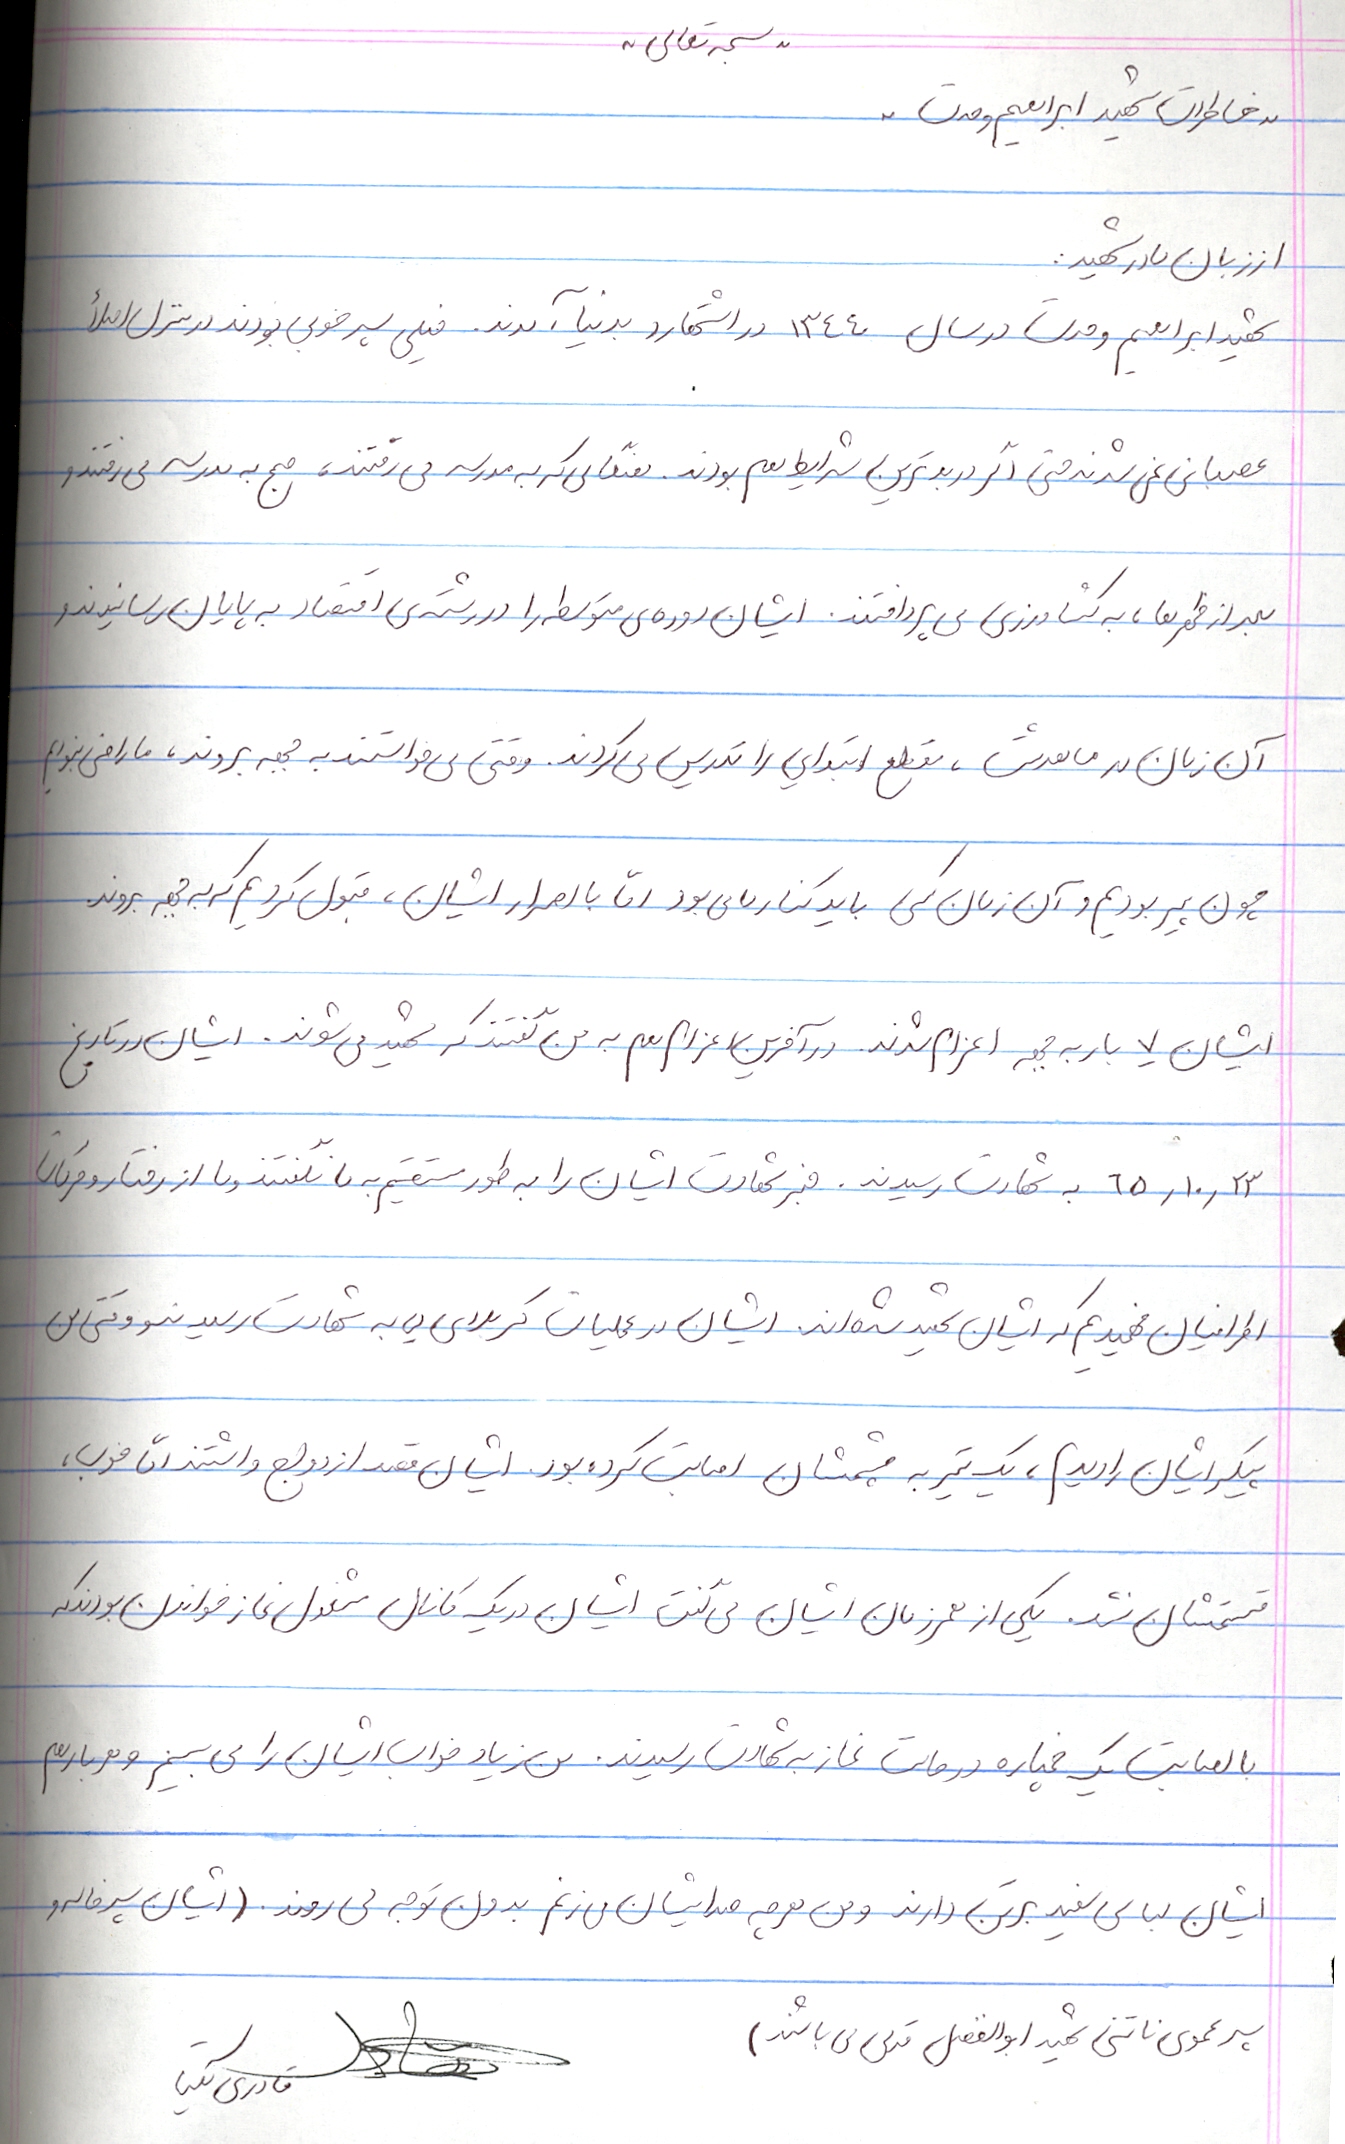 «بسمه تعالی»
«خاطرات شهید ابراهیم وحدت»
از زبان مادر شهید:
شهید ابراهیم وحدت در سال ۱۳۴۴ در اشتهارد بدنیا آمدند. خیلی پسر خوبی بودند در منزل اصلاً
عصبانی نمی شدند حتی اگر در بدترین شرایط هم بودند. هنگامی که به مدرسه می رفتند، صبح به مدرسه می رفتند و
بعد از ظهرها، به کشاورزی می پرداختند. ایشان دوره ی متوسطه را در رشته ی اقتصاد به پایان رسانیدند و
آن زمان در ماهدشت، مقطع ابتدایی را تدریس می کردند. وقتی می خواستند به جبهه بروند، ما راضی نبودیم
چون پیر بودیم و آن زمان کسی باید کنار ما می بود امّا با اصرار ایشان، قبول کردیم که به جبهه بروند.
ایشان ۷ بار به جبهه اعزام شدند. در آخرین اعزام هم به من گفتند که شهید می شوند. ایشان در تاریخ
۶۵/۱۰/۲۳ به شهادت رسیدند. خبر شهادت ایشان را به طور مستقیم به ما نگفتند و ما از رفتار و حرکات
اطرافیان فهمیدیم که ایشان شهید شده اند. ایشان در عملیات کربلای به شهادت رسیدند و وقتی من
پیکر ایشان را دیدم، یک تیر به چشمشان اصابت کرده بود. ایشان قصد ازدواج داشتند امّا خوب،
قسمتشان نشد. یکی از همرزمان ایشان می گفت ایشان در یک کانال مشغول نماز خواندن بودند که
با اصابت یک خمپاره در حالت نماز به شهادت رسیدند. من زیاد خواب ایشان را می بینم و هر بار هم
ایشان لباس سفید بر تن دارند و من هرچه صدایشان می زنم بدون توجه می روند. (ایشان پسر خاله و
پسر عموی ناتنی شهید ابوالفضل می باشد)
قادری یکتا